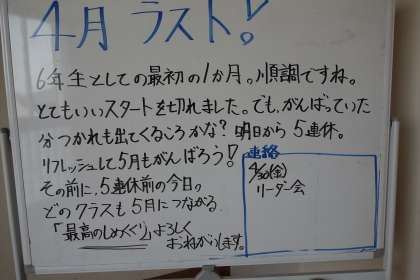 4月 ラスト!
6年生としての最初の1か月。順調ですね。
とてもいいスタートを切れました。でも、がんばっていた
分つかれも出てくるころかな?明日から5連休。
リフレッシュして5月もがんばろう!
その前に、5連休前の今日。
どのクラスも5月につながる
「最高のしめくくり」よろしく
おねがいします。
連絡
4/30(金)
リーダー会